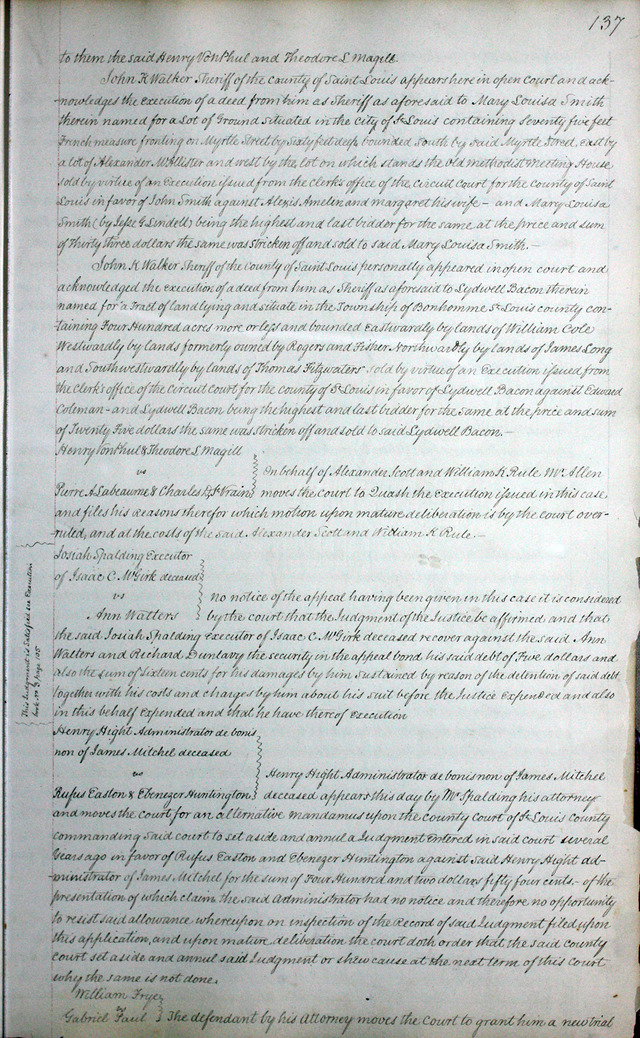 137
to them the said Henry VonPhul and Theodore L Magill
John K Walker Sheriff of the County of Saint Louis appears here in open court and ack-
nowledges the execution of a deed from him as Sheriff as aforesaid to Mary Louisa Smith
therein named for a Lot of Ground situated in the city of St Louis containing seventy five feet
French measure fronting on Myrtle Street by sixty feet deep bounded south by said Myrtle Street, east by
a lot of Alexander McAllister and west by the lot on which stands the old methodist Meeting House
sold by virtue of an Execution issued from the Clerk's office of the Circuit Court for the county of Saint
Louis in favor of John Smith against Alexis Amelin and margaret his wife - and Mary Louisa
Smith (by Jesse G Lindell) being the highest and last bidder for the same at the price and sum
of Thirty three dollars the same was stricken off and sold to said Mary Louisa Smith. -
John K Walker Sheriff of the County of Saint Louis personally appeared in open court and
acknowledged the execution of a deed from him as Sheriff as aforesaid to Lydwell Bacon therein
named for a Tract of land lying and situate in the Township of Bonhomme St Louis county con-
taining Four Hundred acres more or less and bounded Eastwardly by lands of William Cole
Westwardly by lands formerly owned by Rogers and Fisher Northwardly by lands of James Long
and Southwestwardly by lands of Thomas Fitzwaters sold by virtue of an Execution issued from
the Clerk's office of the Circuit Court for the county of St Louis in favor of Lydwell Bacon against Edward
Coleman - and Lydwell Bacon being the highest and last bidder for the same at the price and sum
of Twenty Five dollars the same was stricken off and sold to said Lydwell Bacon. -
Henry VonPhul & Theodore L Magill
vs
On behalf of Alexander Scott and William K Rule Mr Allen
Pierre A Labeaume & Charles D St Vrain moves the court to Quash the Execution issued in this case
and files his Reasons therefor which motion upon mature deliberation is by the court over-
ruled, and at the costs of the said Alexander Scott and William K Rule. -
Josiah Spalding Executor
of Isaac C McGirk deceased
vs
no notice of the appeal having been given in this case it is considered
Ann Walters by the court that the Judgment of the Justice be affirmed and that
the said Josiah Spalding Executor of Isaac C McGirk deceased recover against the said Ann
Walters and Richard Dunlavy the security in the appeal bond his said debt of Five dollars and
also the sum of Sixteen cents for his damages by him sustained by reason of the detention of said debt
together with his costs and charges by him about his suit before the Justice Expended and also
in this behalf expended and that he have thereof Execution
This Judgment is Satisfied see Execution
book page 105
Henry Hight Administrator de bonis
non of James Mitchel deceased
vs
Henry Hight Administrator de bonis non of James Mitchel
Rufus Easton & Ebenezer Huntington deceased appears this day by Mr Spalding his attorney
and moves the court for an alternative mandamus upon the County Court of St Louis County
commanding said court to set aside and annul a Judgment Entered in said court several
Years ago in favor of Rufus Easton and Ebenezer Huntington against said Henry Hight ad-
ministrator of James Mitchel for the sum of Four Hundred and two dollars fifty four cents. - of the
presentation of which claim the said Administrator had no notice and therefore no opportunity
to resist said allowance whereupon an inspection of the Record of said Judgment filed upon
this application, and upon mature deliberation the court doth order that the said county
court set aside and annul said Judgment or shew cause at the next term of this Court
why the same is not done.
William Frye
Gabriel Paul The defendant by his Attorney moves the Court to grant him a new trial